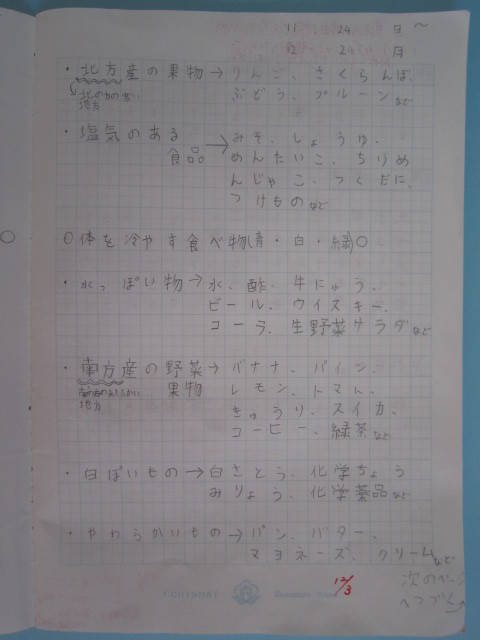 11 24 日 〜
・北方産の果物→りんご、さくらんぼ、
北の方の寒い ぶどう、プルーンなど
地方
・塩気のある みそ、しょうゆ、
食品→めんたいこ、ちりめ
んじゃこ、つくだに、
つけものなど
○体を冷やす食べ物(青・白・緑)○
・水っぽい物→水、酢、牛にゅう、
ビール、ウイスキー、
コーラ、生野菜サラダなど
・南方産の野菜→バナナ、パイン、
果物 レモン、トマト、
地方 きゅうり、スイカ、
コーヒー、緑茶など
・白ぽいもの→白さとう、化学ちょう
みりょう、化学薬品など
・やわらかいもの→パン、バター、
マヨネーズ、クリームなど
12/3
次の
へつづく